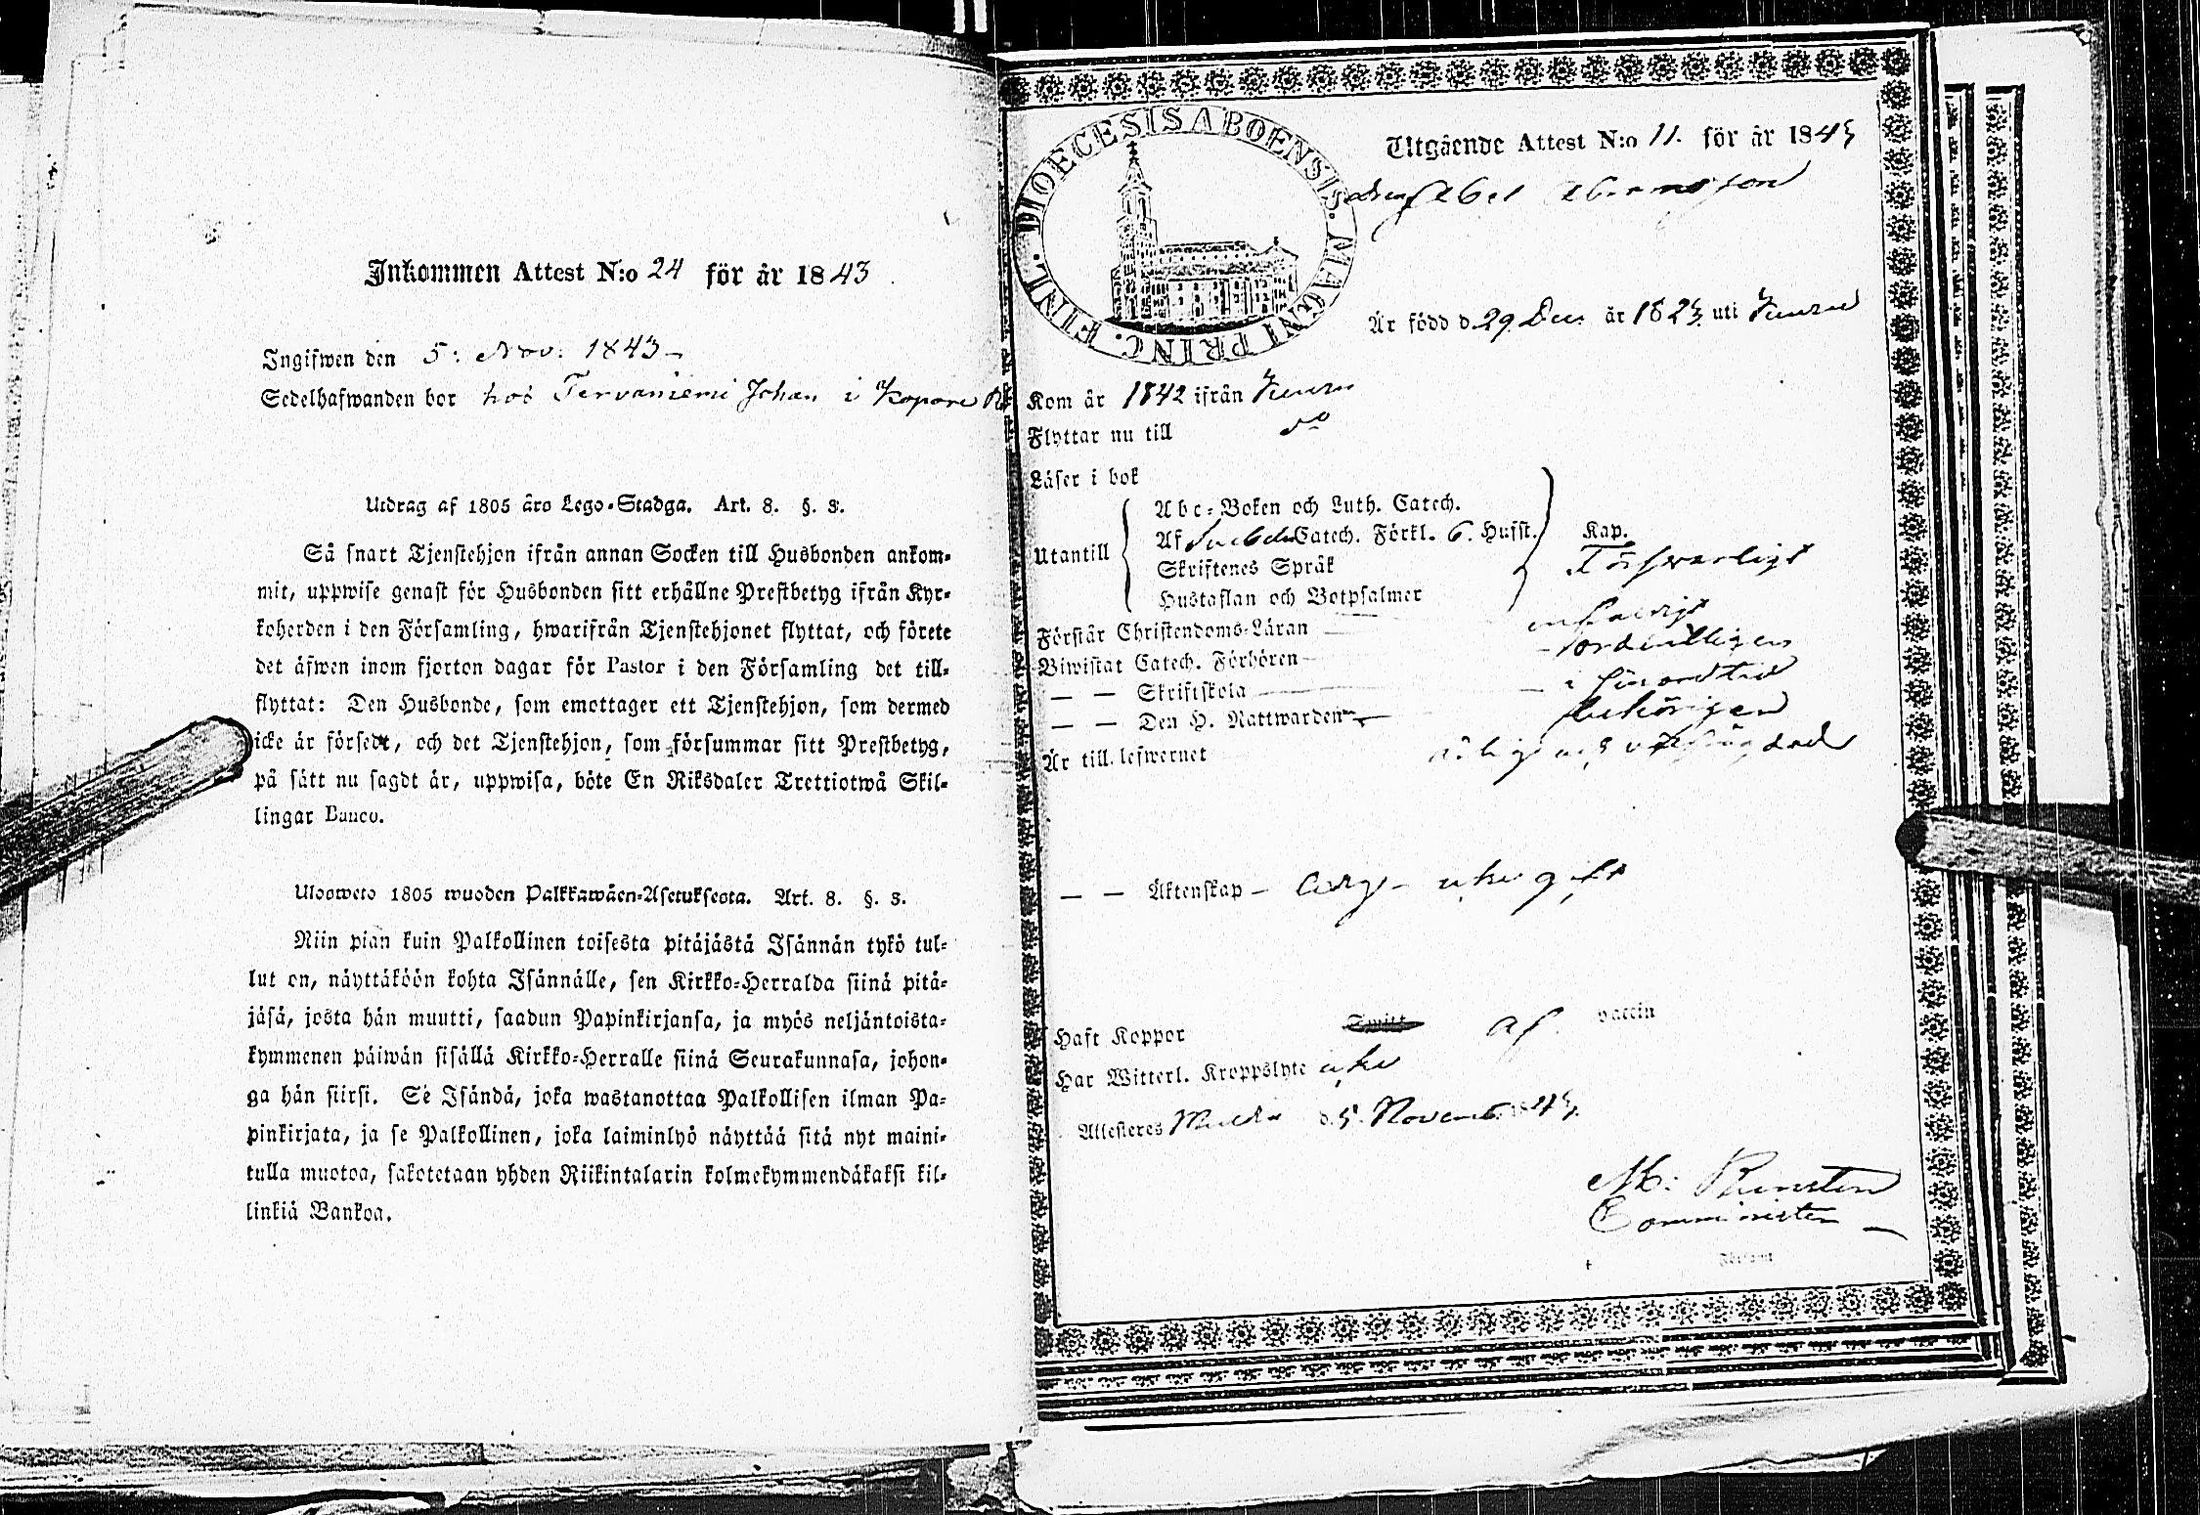 Inkommen Attest N:o 24 för år 1843
Ingifwen den 5: Nov: 1843
Sedelhafwanden bor hos Tervaniemi Johan i
Utdrag af 1805 års Lego-Stadga. Art. 8. §. 3.
Så snart Tjenstehjon ifrån annan Socken till Husbonden ankom-
mit, uppwise genast för Husbonden sitt erhållne Prestbetyg ifrån Kyr-
koherden i den Församling, hwarifrån Tjenstehjonet flyttat, och förete
det äfwen inom fjorton dagar för Pastor i den Församling det till-
flyttat: Den Husbonde, som emottager ett Tjenstehjon, som dermed
icke är försedt, och det Tjenstehjon, som försummar sitt Prestbetyg,
på sätt nu sagdt är, uppwisa, böte En Riksdaler Trettiotwå Skil-
lingar Banco.
Ulosweto 1805 wuoden Palkkawäen-Asetuksesta. Art. 8. §. 3.
Niin pian kuin Palkollinen toisesta pitäjästä Isännän tykö tul-
lut on, näyttäköön kohta Isännälle, sen Kirkko-Herralda siinä pitä-
jäsä, josta hän muutti, saadun Papinkirjansa, ja myös neljäntoista-
kymmenen päiwän sisällä Kirkko-Herralle siinä Seurakunnasa, johon-
ga hän siirsi. Se Isändä, joka wastanottaa Palkollisen ilman Pa-
pinkirjata, ja se Palkollinen, joka laiminlyö näyttää sitä nyt maini-
tulla muotoa, sakotetaan yhden Riikintalarin kolmekymmendäkaksi kil-
linkiä Bankoa.
DIOECESIS ABOENSIS. MAGNI PRINC. FINL.
Utgående Attest N:o 11. för år 1843
Abel
Är född d. 29 Dec. år 1823 uti
Kom år 1842 ifrån
Flyttar nu till do
Läser i bok
Utantill
Abc-Boken och Luth. Catech.
Af Catech. Förkl. 6. Hufst. Kap.
Skriftenes Språk Förswarligt
Hustaflan och Botpsalmer
Förstår Christendoms-Läran enfaldigt
Biwistat Catech. Förhören ordentligen
— — Skriftskola
— — Den H. Nattwarden behörigen
Är till lefwernet
— — Äktenskap ledig
Haft Koppor af vaccin
Har Witterl. Kroppslyte icke
Attesteres d. 5. November 1843.
Comminister